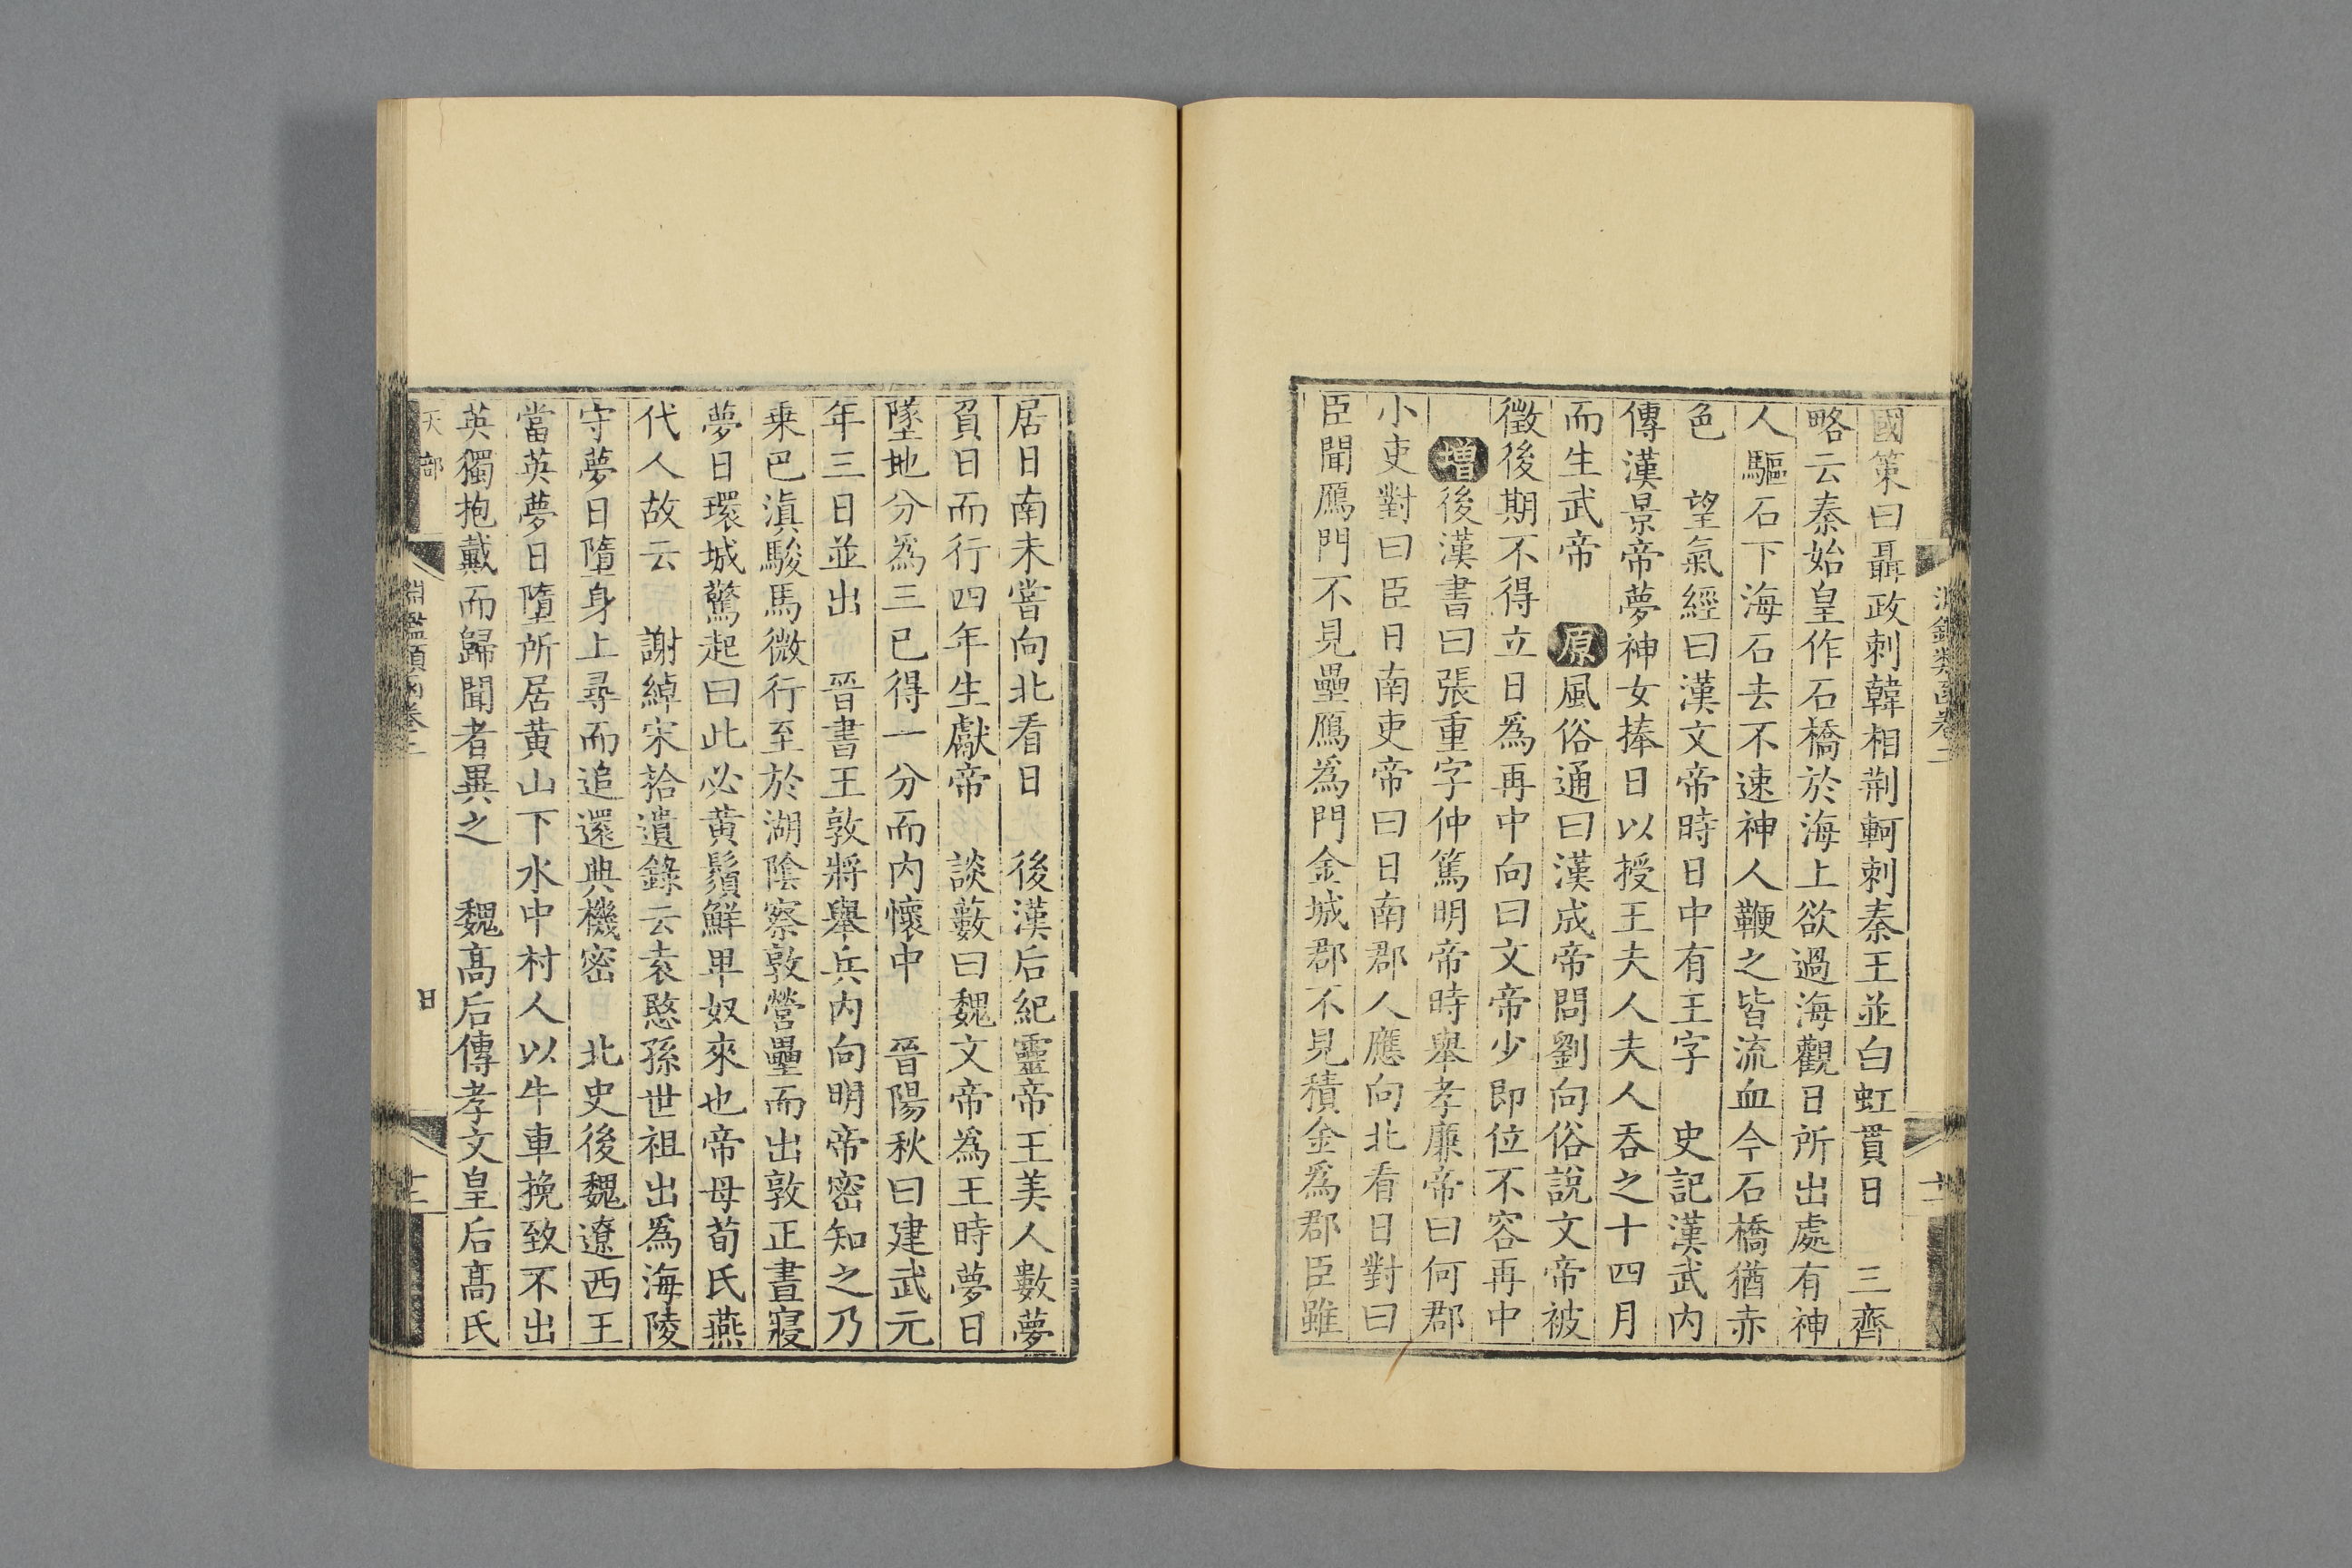 國策曰聶政刺韓相荆軻刺秦王並白虹貫日　三齊
略云秦始皇作石橋於海上欲過海觀日所出處有神
人驅石下海石去不速神人鞭之皆流血今石橋猶赤
色　望氣經曰漢文帝時日中有王字　史記漢武内
傳漢景帝夢神女捧日以授王夫人夫人吞之十四月
而生武帝　原風俗通曰漢成帝問劉向俗說文帝被
徵後期不得立日爲再中向曰文帝少即位不容再中
增後漢書曰張重字仲篤明帝時舉孝廉帝曰何郡
小吏對曰臣日南吏帝曰日南郡人應向北看日對曰
臣聞鴈門不見壘鴈爲門金城郡不見積金爲郡臣雖
居日南未嘗向北看日　後漢后紀靈帝王美人數夢
負日而行四年生獻帝　談藪曰魏文帝爲王時夢日
墜地分爲三已得一分而内懷中　晉陽秋曰建武元
年三日並出　晉書王敦將舉兵内向明帝密知之乃
乗巴滇駿馬微行至於湖陰察敦營壘而出敦正晝寢
夢日環城驚起曰此必黄鬚鮮卑奴來也帝母荀氏燕
代人故云　謝綽宋拾遺錄云袁愍孫世祖出爲海陵
守夢日墮身上尋而追還典機密　北史後魏遼西王
當英夢日墮所居黄山下水中村人以牛車挽致不出
英獨抱戴而歸聞者異之　魏髙后傳孝文皇后髙氏
天部
淵鑑類函卷二
日